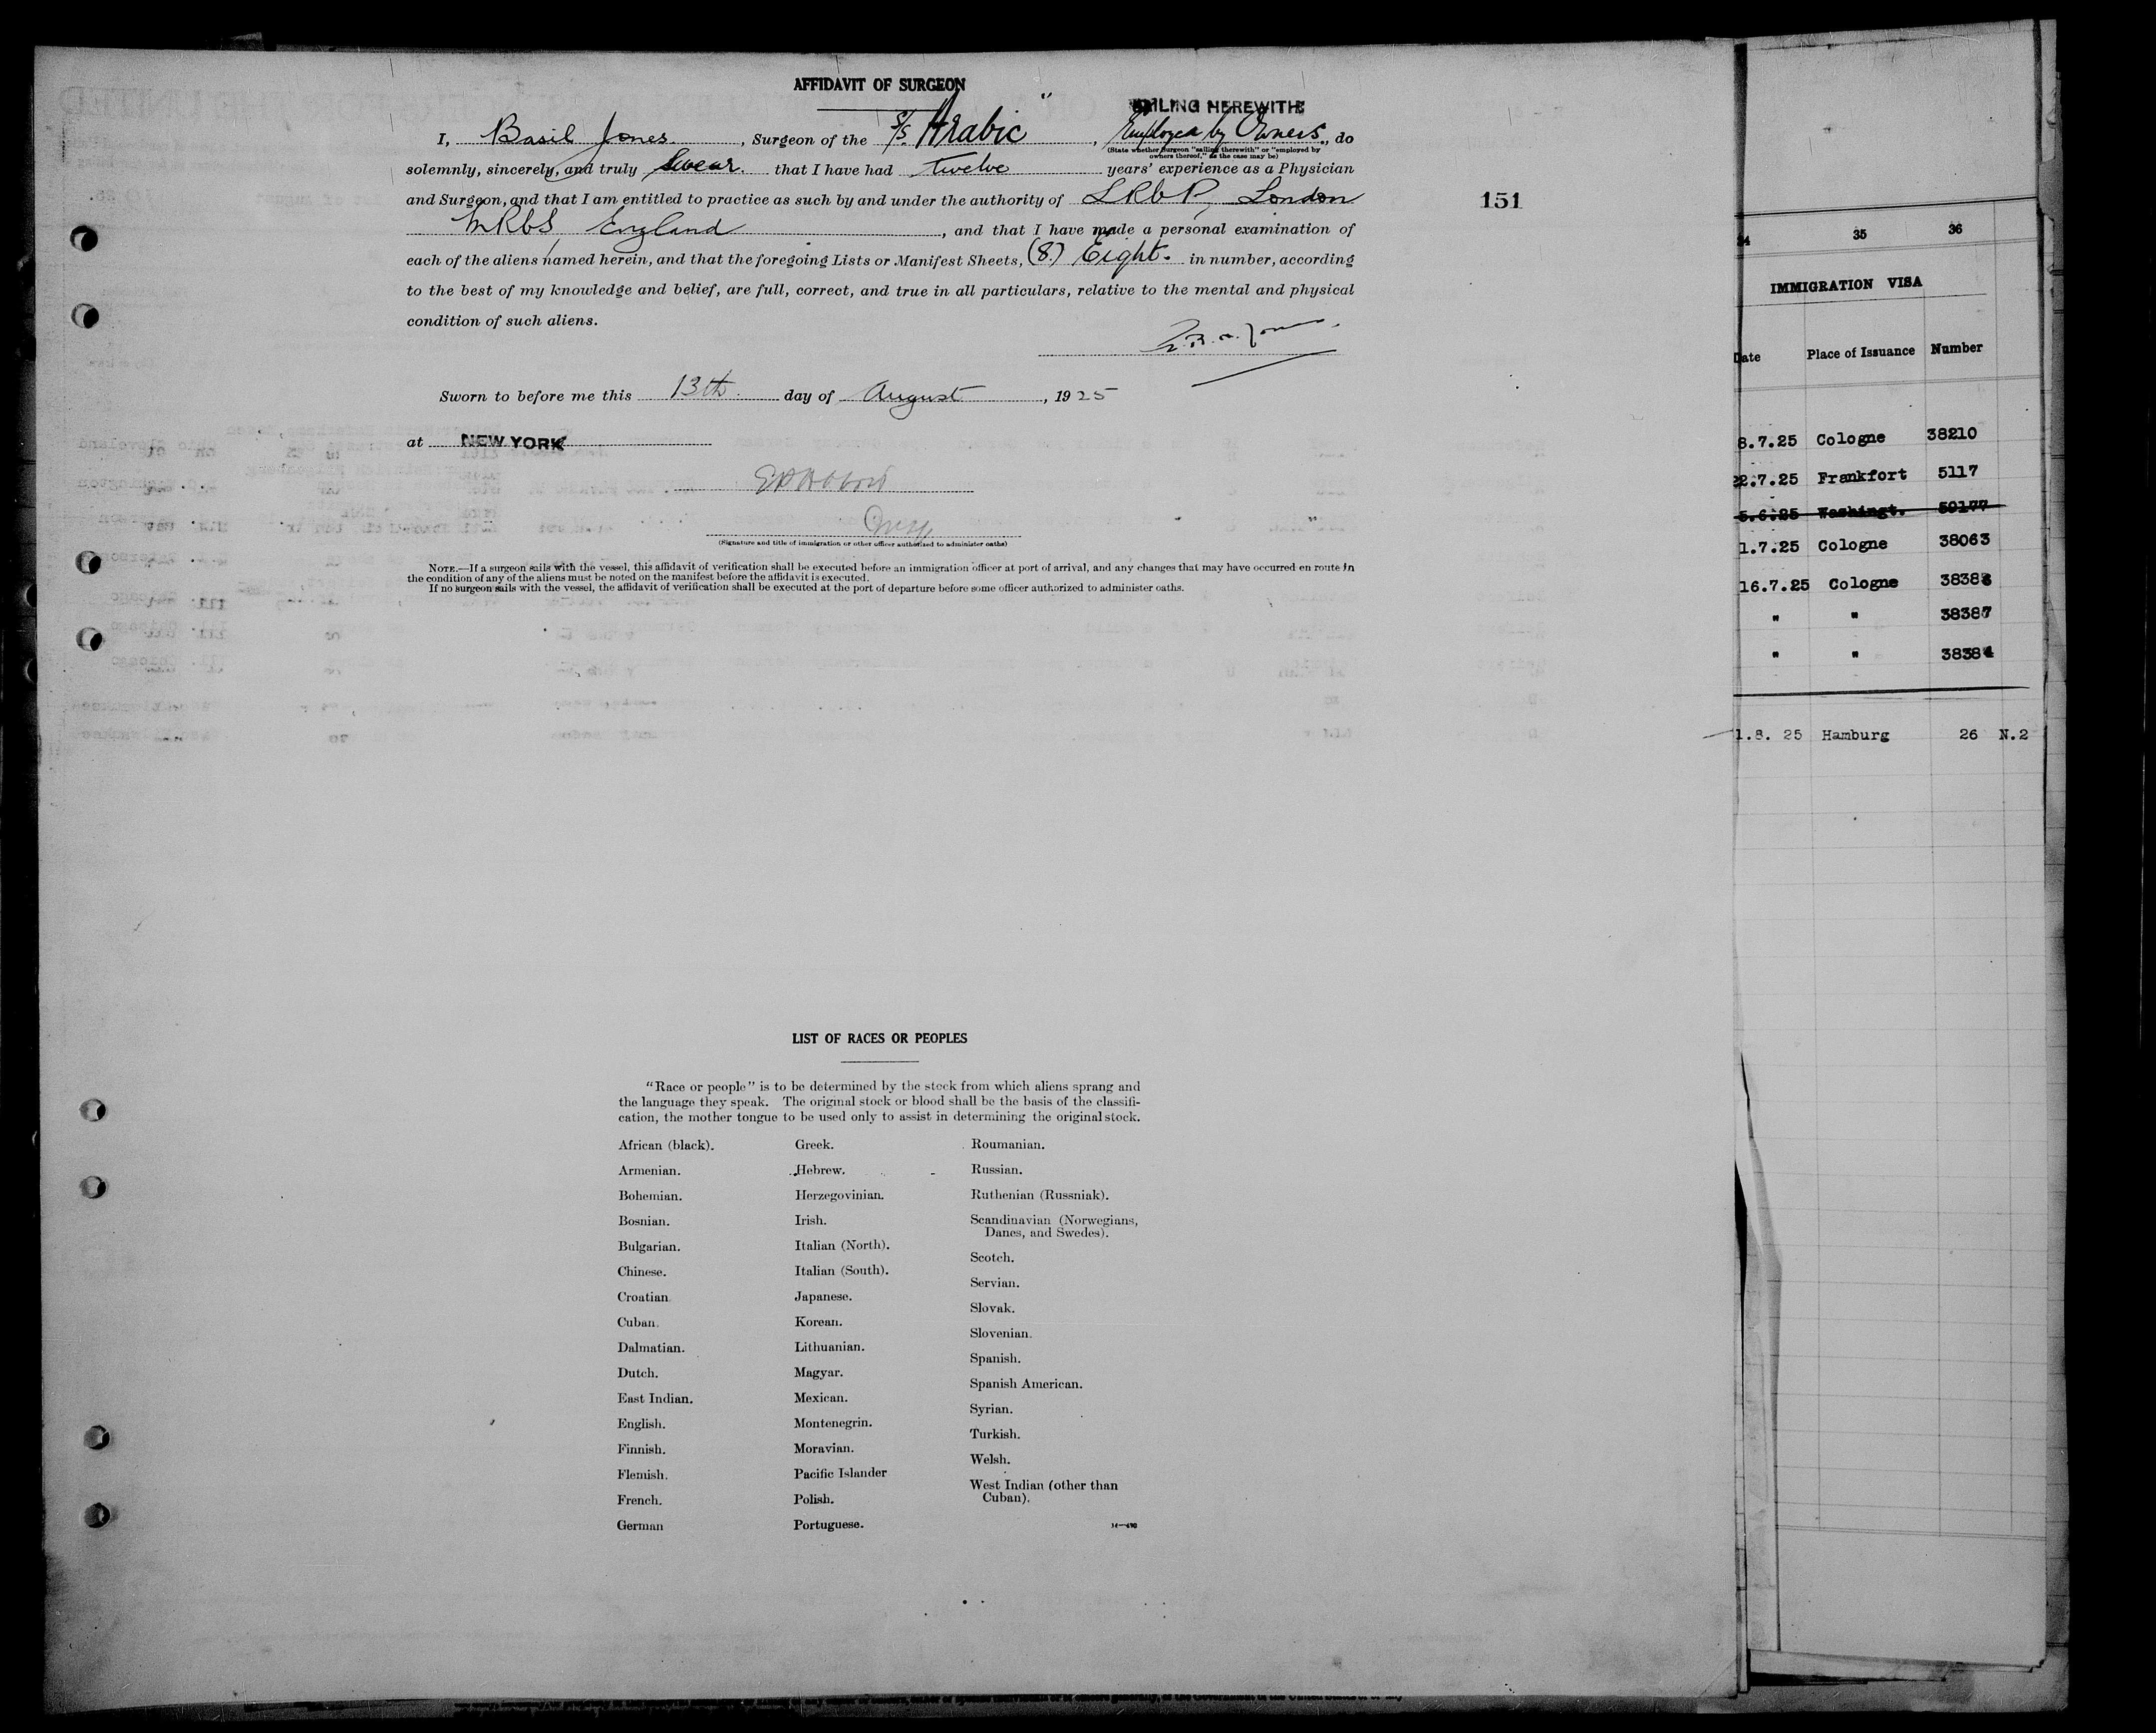 AFFIDAVIT OF SURGEON
SAILING HEREWITH
I, Basil Jones, Surgeon of the S/S. "Arabic", Employed by Owners, do
(State whether Surgeon "sailing therewith" or "employed by
owners thereof," as the case may be)
solemnly, sincerely, and truly Swear. that I have had twelve years' experience as a Physician
and Surgeon, and that I am entitled to practice as such by and under the authority of LRCP, London
MRCS England, and that I have made a personal examination of
each of the aliens named herein, and that the foregoing Lists or Manifest Sheets, (8.) Eight. in number, according
to the best of my knowledge and belief, are full, correct, and true in all particulars, relative to the mental and physical
condition of such aliens.
Jones.
Sworn to before me this 13th. day of August, 1925
at NEW YORK
(Signature and title of immigration or other officer authorized to administer oaths)
NOTE.—If a surgeon sails with the vessel, this affidavit of verification shall be executed before an immigration officer at port of arrival, and any changes that may have occurred en route in
the condition of any of the aliens must be noted on the manifest before the affidavit is executed.
If no surgeon sails with the vessel, the affidavit of verification shall be executed at the port of departure before some officer authorized to administer oaths.
151
LIST OF RACES OR PEOPLES
"Race or people" is to be determined by the stock from which aliens sprang and
the language they speak. The original stock or blood shall be the basis of the classifi-
cation, the mother tongue to be used only to assist in determining the original stock.
African (black).
Armenian.
Bohemian.
Bosnian.
Bulgarian.
Chinese.
Croatian
Cuban.
Dalmatian.
Dutch.
East Indian.
English.
Finnish.
Flemish.
French.
German
Greek.
Hebrew.
Herzegovinian.
Irish.
Italian (North).
Italian (South).
Japanese.
Korean.
Lithuanian.
Magyar.
Mexican.
Montenegrin.
Moravian.
Pacific Islander
Polish.
Portuguese.
Roumanian.
Russian.
Ruthenian (Russniak).
Scandinavian (Norwegians,
Danes, and Swedes).
Scotch.
Servian.
Slovak.
Slovenian.
Spanish.
Spanish American.
Syrian.
Turkish.
Welsh.
West Indian (other than
Cuban).
34 35 36
IMMIGRATION VISA
Date Place of Issuance Number
8.7.25 Cologne 38210
22.7.25 Frankfort 5117
5.6.25 Washingt. 59177
1.7.25 Cologne 38063
16.7.25 Cologne
" " 38387
" " 38384
1.8. 25 Hamburg 26 N.2